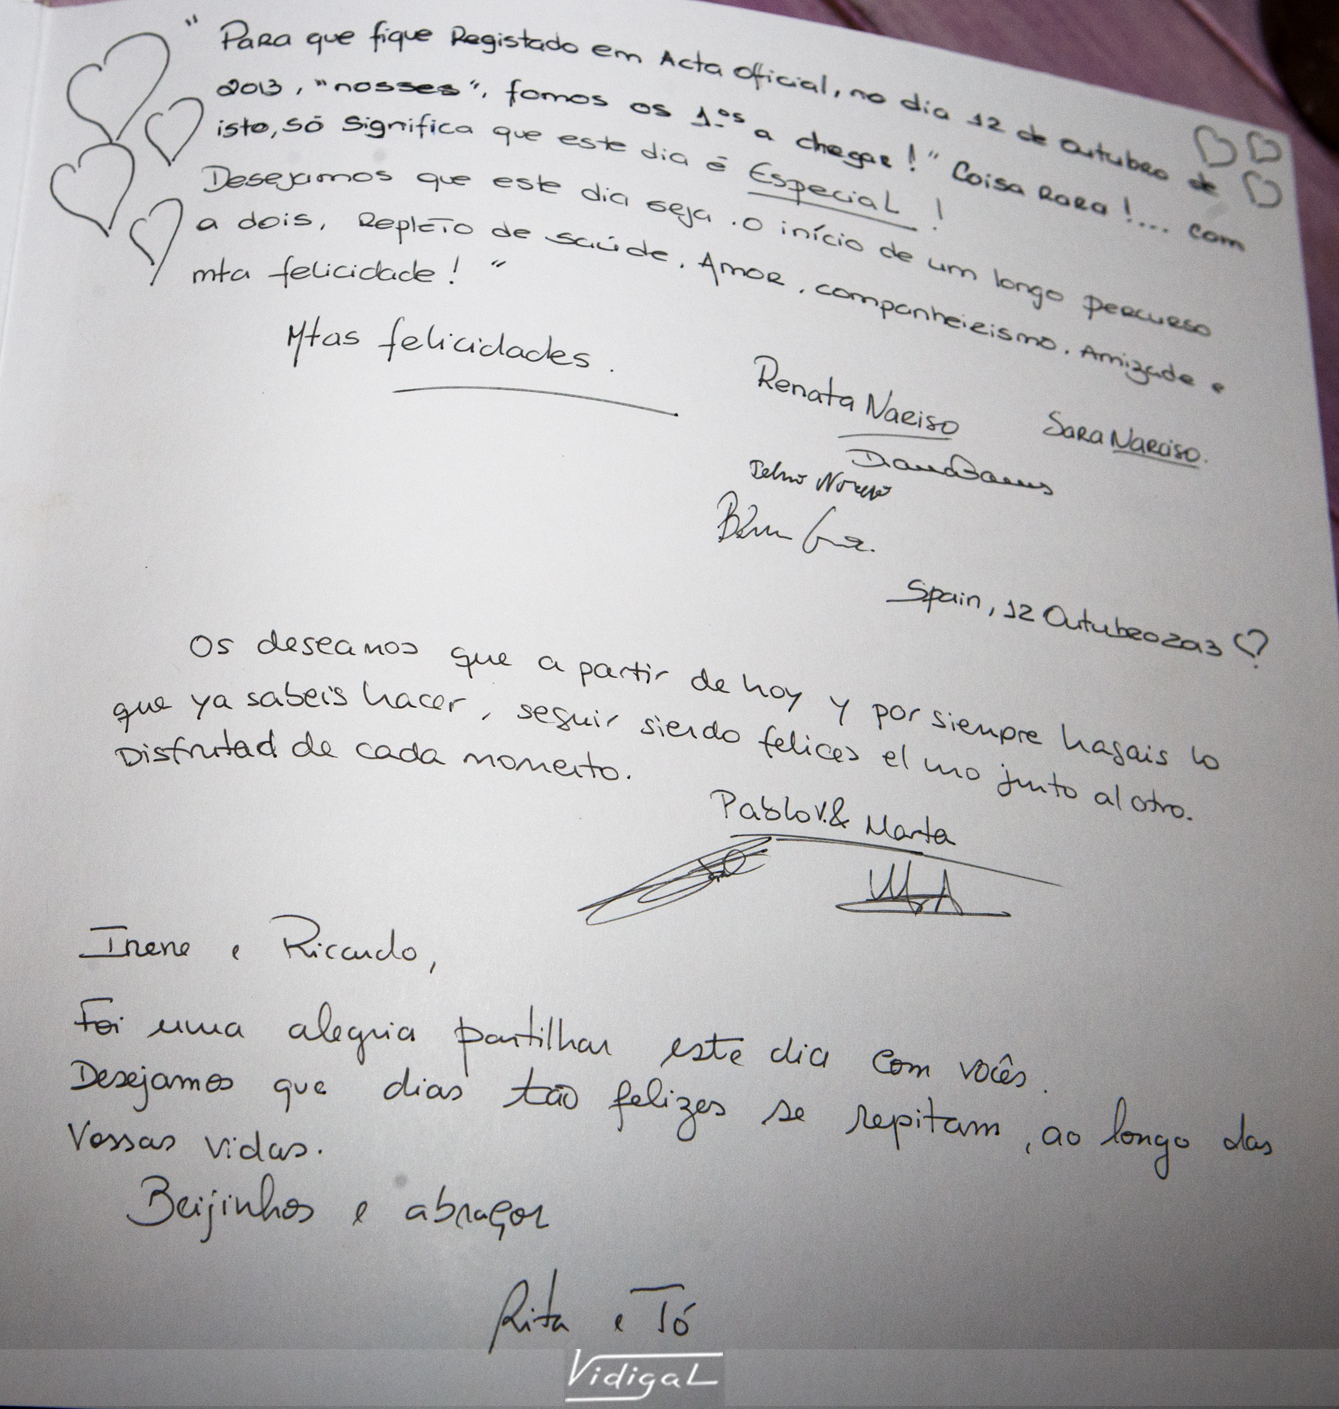 " Para que fique Registado em Acta oficial, no dia 12 de Outubro de
2013, "nosses", fomos os 1.ºs a chegar!" Coisa Rara!... com
isto, só significa que este dia é Especial!
Desejamos que este dia seja o início de um longo percurso
a dois, Repleto de saúde, Amor, companheirismo, Amizade e
mta felicidade! "
Mtas felicidades.
Renata Nariso
Sara Narciso.
Spain, 12 Outubro 2013
Os deseamos que a partir de hoy y por siempre hagais lo
que ya sabeis hacer, seguir siendo felices el uno junto al otro.
Disfrutad de cada momento.
Pablo V. & Marta
Irene e Ricardo,
Foi uma alegria partilhar este dia com vocês.
Desejamos que dias tão felizes se repitam, ao longo das
Vossas vidas.
Beijinhos e abraços
Rita e Tó
Vidigal